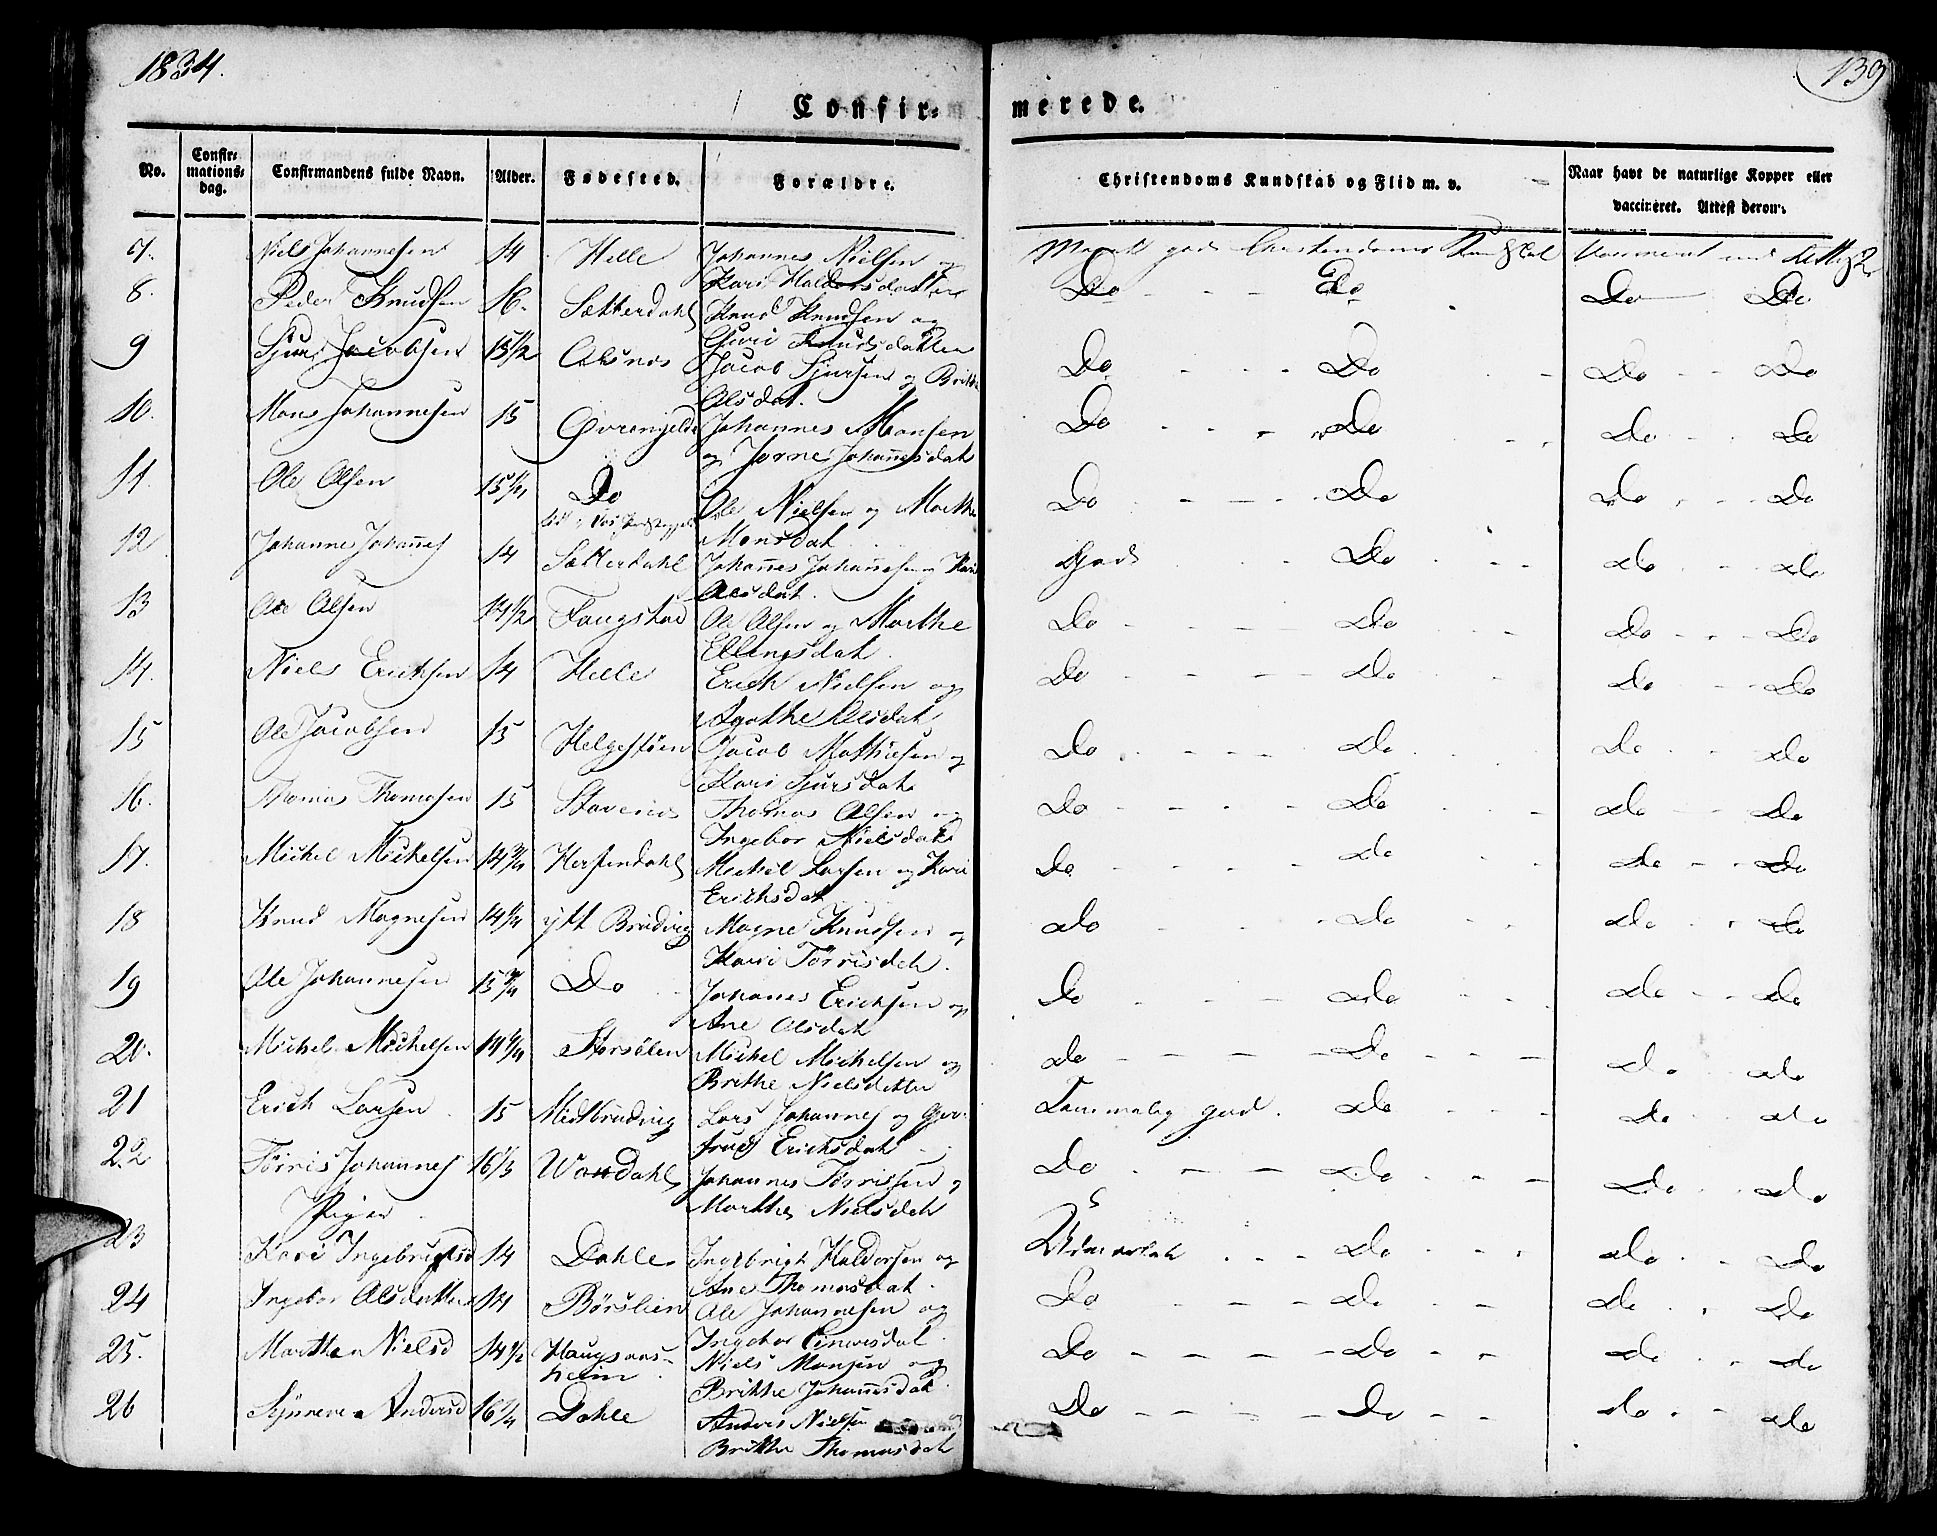 1834.
139
Confir=
merede.
No.
Confir= mations= dag.
Confirmandens fulde Navn.
Alder.
Fødested.
Forældre.
Christendoms Kundskab og Flid m. v.
Naar havt de naturlige Kopper eller vaccineret. Attest derom.
7. Niels Johannesen 14 Helle Johannes Nielsen og Kari Haldorsdatter Meget god Christendoms Kundskab
8. Peder Knudsen 16. Sætterdahl Knud Knudsen og Guri Knudsdatter Do - - Do Do Do
9 Sjur Jacobsen 15 1/2 Alsnes Jacob Sjursen og Brithe Olsdat. Do - - - Do - Do - - Do
10. Mons Johannesen 15 Øvrenjelde Johannes Monsen og Johannesdat Do - - - Do Do - - Do
11. Ole Olsen 15 1/4 Do Ole Nielsen og Marthe Monsdat Do - - - Do Do - - Do
12 Johannes Johannes 14 Sætterdahl Johannes Johannesen og Kari Olsdat. God Do - - Do - - Do
13 Ole Olsen 14 1/2 Faugstad Ole Olsen og Marthe Ellingsdat. Do - - - Do - - Do - - Do
14. Niels Erichsen 14 Helle Erich Nielsen og Agathe Olsdat Do - - - Do - - Do - - Do
15 Ole Jacobsen 15 Helgestøen Jacob Mathiesen og Kari Sjursdat. Do - - - Do Do - - Do
16. Thomas Thomasen 15 Stavenes Thomas Olsen og Ingebor Nielsdat Do - - - Do - - Do - - Do
17. Michel Michelsen 14 3/4 Herstendahl Michel Larsen og Kari Erichsdat Do - - - Do - - Do - - Do
18 Knud Magnesen 14 1/4 ytt Brudvig Magne Knudsen og Kari Tørrisdat. Do - - Do - Do - - Do
19 Ole Johannesen 15 3/4 Do Johanes Erichsen og Ane Olsdat Do - - - Do - - Do - - Do
20. Michel Michelsen 14 1/4 Storsølen Michel Michelsen og Brithe Nielsdatter Do - - - Do - - - Do - - Do
21 Erich Larsen 15 Midtbrudvig Lars Johannes og Gjertrud Erichsdat Temmelig god. Do - - Do - - Do
22 Tørris Johannes 16 1/3 Wandahl Johannes Tørrissen og Marthe Nielsdat Do - - - Do - - Do - - Do
Piger
23 Kari Ingebrigtsd 14 Dahle Ingebrigt Haldorsen og Ane Thomasdat. Udmærket - - - Do - - Do - - Do
24 Ingebor Olsdatter 14 Børslien Ole Johannesen og Ingebor Einarsdat. Do - - - Do - - Do - - Do
25. Marthe Nielsd 14 1/2 Haugsvarsheim Niels Monsen og Brithe Johannesdat. Do - - - Do - - Do - - Do
26 Synneve Andersd 16 1/4 Dahle Anders Nielsen og Brithe Thomasdat Do - - - Do - - Do - - Do